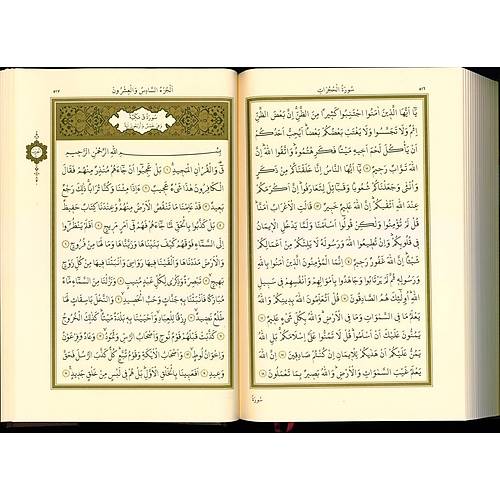 سُورَةُ الْحُجُرَاتِ ٥١٦
يَا أَيُّهَا الَّذِينَ آمَنُوا اجْتَنِبُوا كَثِيرًا مِنَ الظَّنِّ إِنَّ بَعْضَ الظَّنِّ
إِثْمٌ وَلَا تَجَسَّسُوا وَلَا يَغْتَبْ بَعْضُكُمْ بَعْضًا أَيُحِبُّ أَحَدُكُمْ
أَنْ يَأْكُلَ لَحْمَ أَخِيهِ مَيْتًا فَكَرِهْتُمُوهُ وَاتَّقُوا اللَّهَ إِنَّ
اللَّهَ تَوَّابٌ رَحِيمٌ ﴿١٢﴾ يَا أَيُّهَا النَّاسُ إِنَّا خَلَقْنَاكُمْ مِنْ ذَكَرٍ
وَأُنْثَى وَجَعَلْنَاكُمْ شُعُوبًا وَقَبَائِلَ لِتَعَارَفُوا إِنَّ أَكْرَمَكُمْ
عِنْدَ اللَّهِ أَتْقَيكُمْ إِنَّ اللَّهَ عَلِيمٌ خَبِيرٌ ﴿١٣﴾ قَالَتِ الْأَعْرَابُ آمَنَّا
قُلْ لَمْ تُؤْمِنُوا وَلَكِنْ قُولُوا أَسْلَمْنَا وَلَمَّا يَدْخُلِ الْإِيمَانُ
فِي قُلُوبِكُمْ وَإِنْ تُطِيعُوا اللَّهَ وَرَسُولَهُ لَا يَلِتْكُمْ مِنْ أَعْمَالِكُمْ
شَيْئًا إِنَّ اللَّهَ غَفُورٌ رَحِيمٌ ﴿١٤﴾ إِنَّمَا الْمُؤْمِنُونَ الَّذِينَ آمَنُوا بِاللَّهِ
وَرَسُولِهِ ثُمَّ لَمْ يَرْتَابُوا وَجَاهَدُوا بِأَمْوَالِهِمْ وَأَنْفُسِهِمْ فِي سَبِيلِ
اللَّهِ أُولَئِكَ هُمُ الصَّادِقُونَ ﴿١٥﴾ قُلْ أَتُعَلِّمُونَ اللَّهَ بِدِينِكُمْ وَاللَّهُ
يَعْلَمُ مَا فِي السَّمَوَاتِ وَمَا فِي الْأَرْضِ وَاللَّهُ بِكُلِّ شَيْءٍ عَلِيمٌ ﴿١٦﴾
يَمُنُّونَ عَلَيْكَ أَنْ أَسْلَمُوا قُلْ لَا تَمُنُّوا عَلَيَّ إِسْلَامَكُمْ بَلِ اللَّهُ
يَمُنُّ عَلَيْكُمْ أَنْ هَدَيكُمْ لِلْإِيمَانِ إِنْ كُنْتُمْ صَادِقِينَ ﴿١٧﴾ إِنَّ اللَّهَ
يَعْلَمُ غَيْبَ السَّمَوَاتِ وَالْأَرْضِ وَاللَّهُ بَصِيرٌ بِمَا تَعْمَلُونَ ﴿١٨﴾
سُورَةُ
اَلْجُزْءُ السَّادِسُ وَالْعِشْرُونَ ٥١٧
سُورَةُ قٓ مَكِّيَّةٌ
بِسْمِ اللَّهِ الرَّحْمَنِ الرَّحِيمِ
قٓ وَالْقُرْآنِ الْمَجِيدِ ﴿١﴾ بَلْ عَجِبُوا أَنْ جَاءَهُمْ مُنْذِرٌ مِنْهُمْ فَقَالَ
الْكَافِرُونَ هَذَا شَيْءٌ عَجِيبٌ ﴿٢﴾ ءَإِذَا مِتْنَا وَكُنَّا تُرَابًا ذَلِكَ رَجْعٌ
بَعِيدٌ ﴿٣﴾ قَدْ عَلِمْنَا مَا تَنْقُصُ الْأَرْضُ مِنْهُمْ وَعِنْدَنَا كِتَابٌ حَفِيظٌ ﴿٤﴾
بَلْ كَذَّبُوا بِالْحَقِّ لَمَّا جَاءَهُمْ فَهُمْ فِي أَمْرٍ مَرِيجٍ ﴿٥﴾ أَفَلَمْ يَنْظُرُوا
إِلَى السَّمَاءِ فَوْقَهُمْ كَيْفَ بَنَيْنَاهَا وَزَيَّنَّاهَا وَمَا لَهَا مِنْ فُرُوجٍ ﴿٦﴾
وَالْأَرْضَ مَدَدْنَاهَا وَأَلْقَيْنَا فِيهَا رَوَاسِيَ وَأَنْبَتْنَا فِيهَا مِنْ كُلِّ زَوْجٍ
بَهِيجٍ ﴿٧﴾ تَبْصِرَةً وَذِكْرَى لِكُلِّ عَبْدٍ مُنِيبٍ ﴿٨﴾ وَنَزَّلْنَا مِنَ السَّمَاءِ مَاءً
مُبَارَكًا فَأَنْبَتْنَا بِهِ جَنَّاتٍ وَحَبَّ الْحَصِيدِ ﴿٩﴾ وَالنَّخْلَ بَاسِقَاتٍ لَهَا
طَلْعٌ نَضِيدٌ ﴿١٠﴾ رِزْقًا لِلْعِبَادِ وَأَحْيَيْنَا بِهِ بَلْدَةً مَيْتًا كَذَلِكَ الْخُرُوجُ
﴿١١﴾ كَذَّبَتْ قَبْلَهُمْ قَوْمُ نُوحٍ وَأَصْحَابُ الرَّسِّ وَثَمُودُ ﴿١٢﴾ وَعَادٌ وَفِرْعَوْنُ
وَإِخْوَانُ لُوطٍ ﴿١٣﴾ وَأَصْحَابُ الْأَيْكَةِ وَقَوْمُ تُبَّعٍ كُلٌّ كَذَّبَ الرُّسُلَ فَحَقَّ
وَعِيدِ ﴿١٤﴾ أَفَعَيِينَا بِالْخَلْقِ الْأَوَّلِ بَلْ هُمْ فِي لَبْسٍ مِنْ خَلْقٍ جَدِيدٍ ﴿١٥﴾